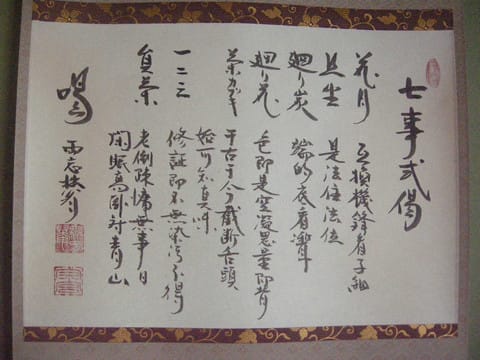 七事式偈
花月 互換機鋒看子細
且坐 是法住法位
廻り炭 端的底看聻
廻り花 色即是空凝思量即背
茶カブキ 于古于今截断舌頭
始可知真味
一二三 修証即不無染汚不得
員茶 老倒疎慵無事日
閑眠高臥対青山
喝